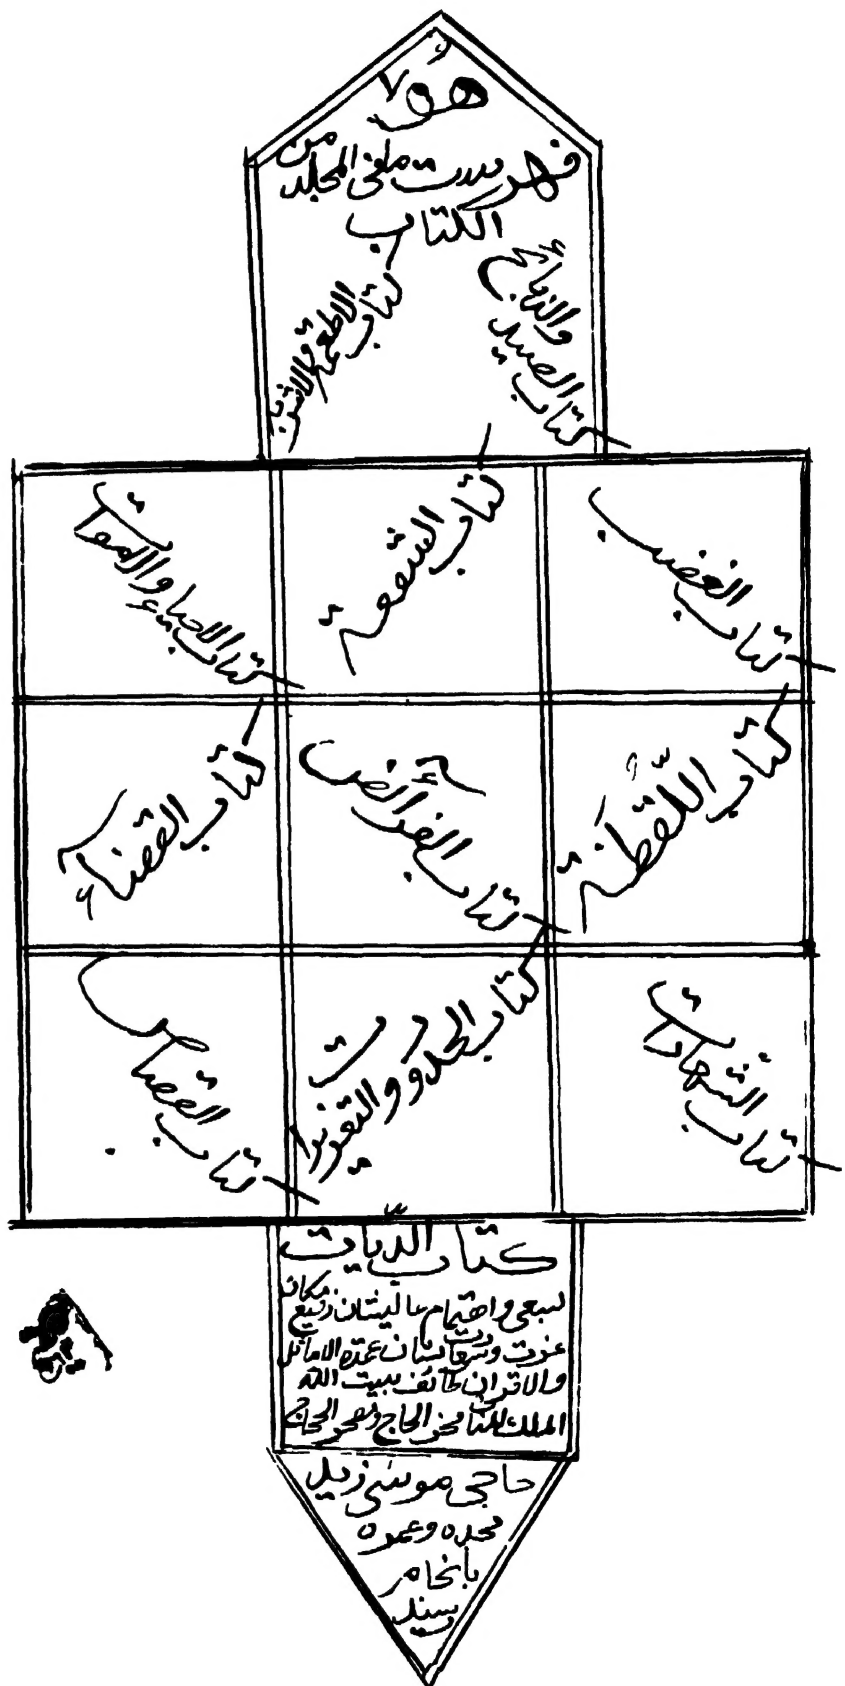 هو
فهرست ما فی المجلد من
الکتاب
کتاب الصید والذبائح
کتاب الاطعمة والاشربة
کتاب الغضب
کتاب الشفعة
کتاب الاحیاء والاموات
کتاب اللقطة
کتاب الفرائض
کتاب القضاء
کتاب الشهادات
کتاب الحدود والتعزیرات
کتاب القصاص
کتاب الدیات
بسعی و اهتمام عالیشان رفیع مکان
عزت و سعادت نشان عمدة الاماثل
والاقران طائف بیت الله
الملک فخر الحاج و
حاجی موسی زید
مجده و عمره
بانجام
رسید